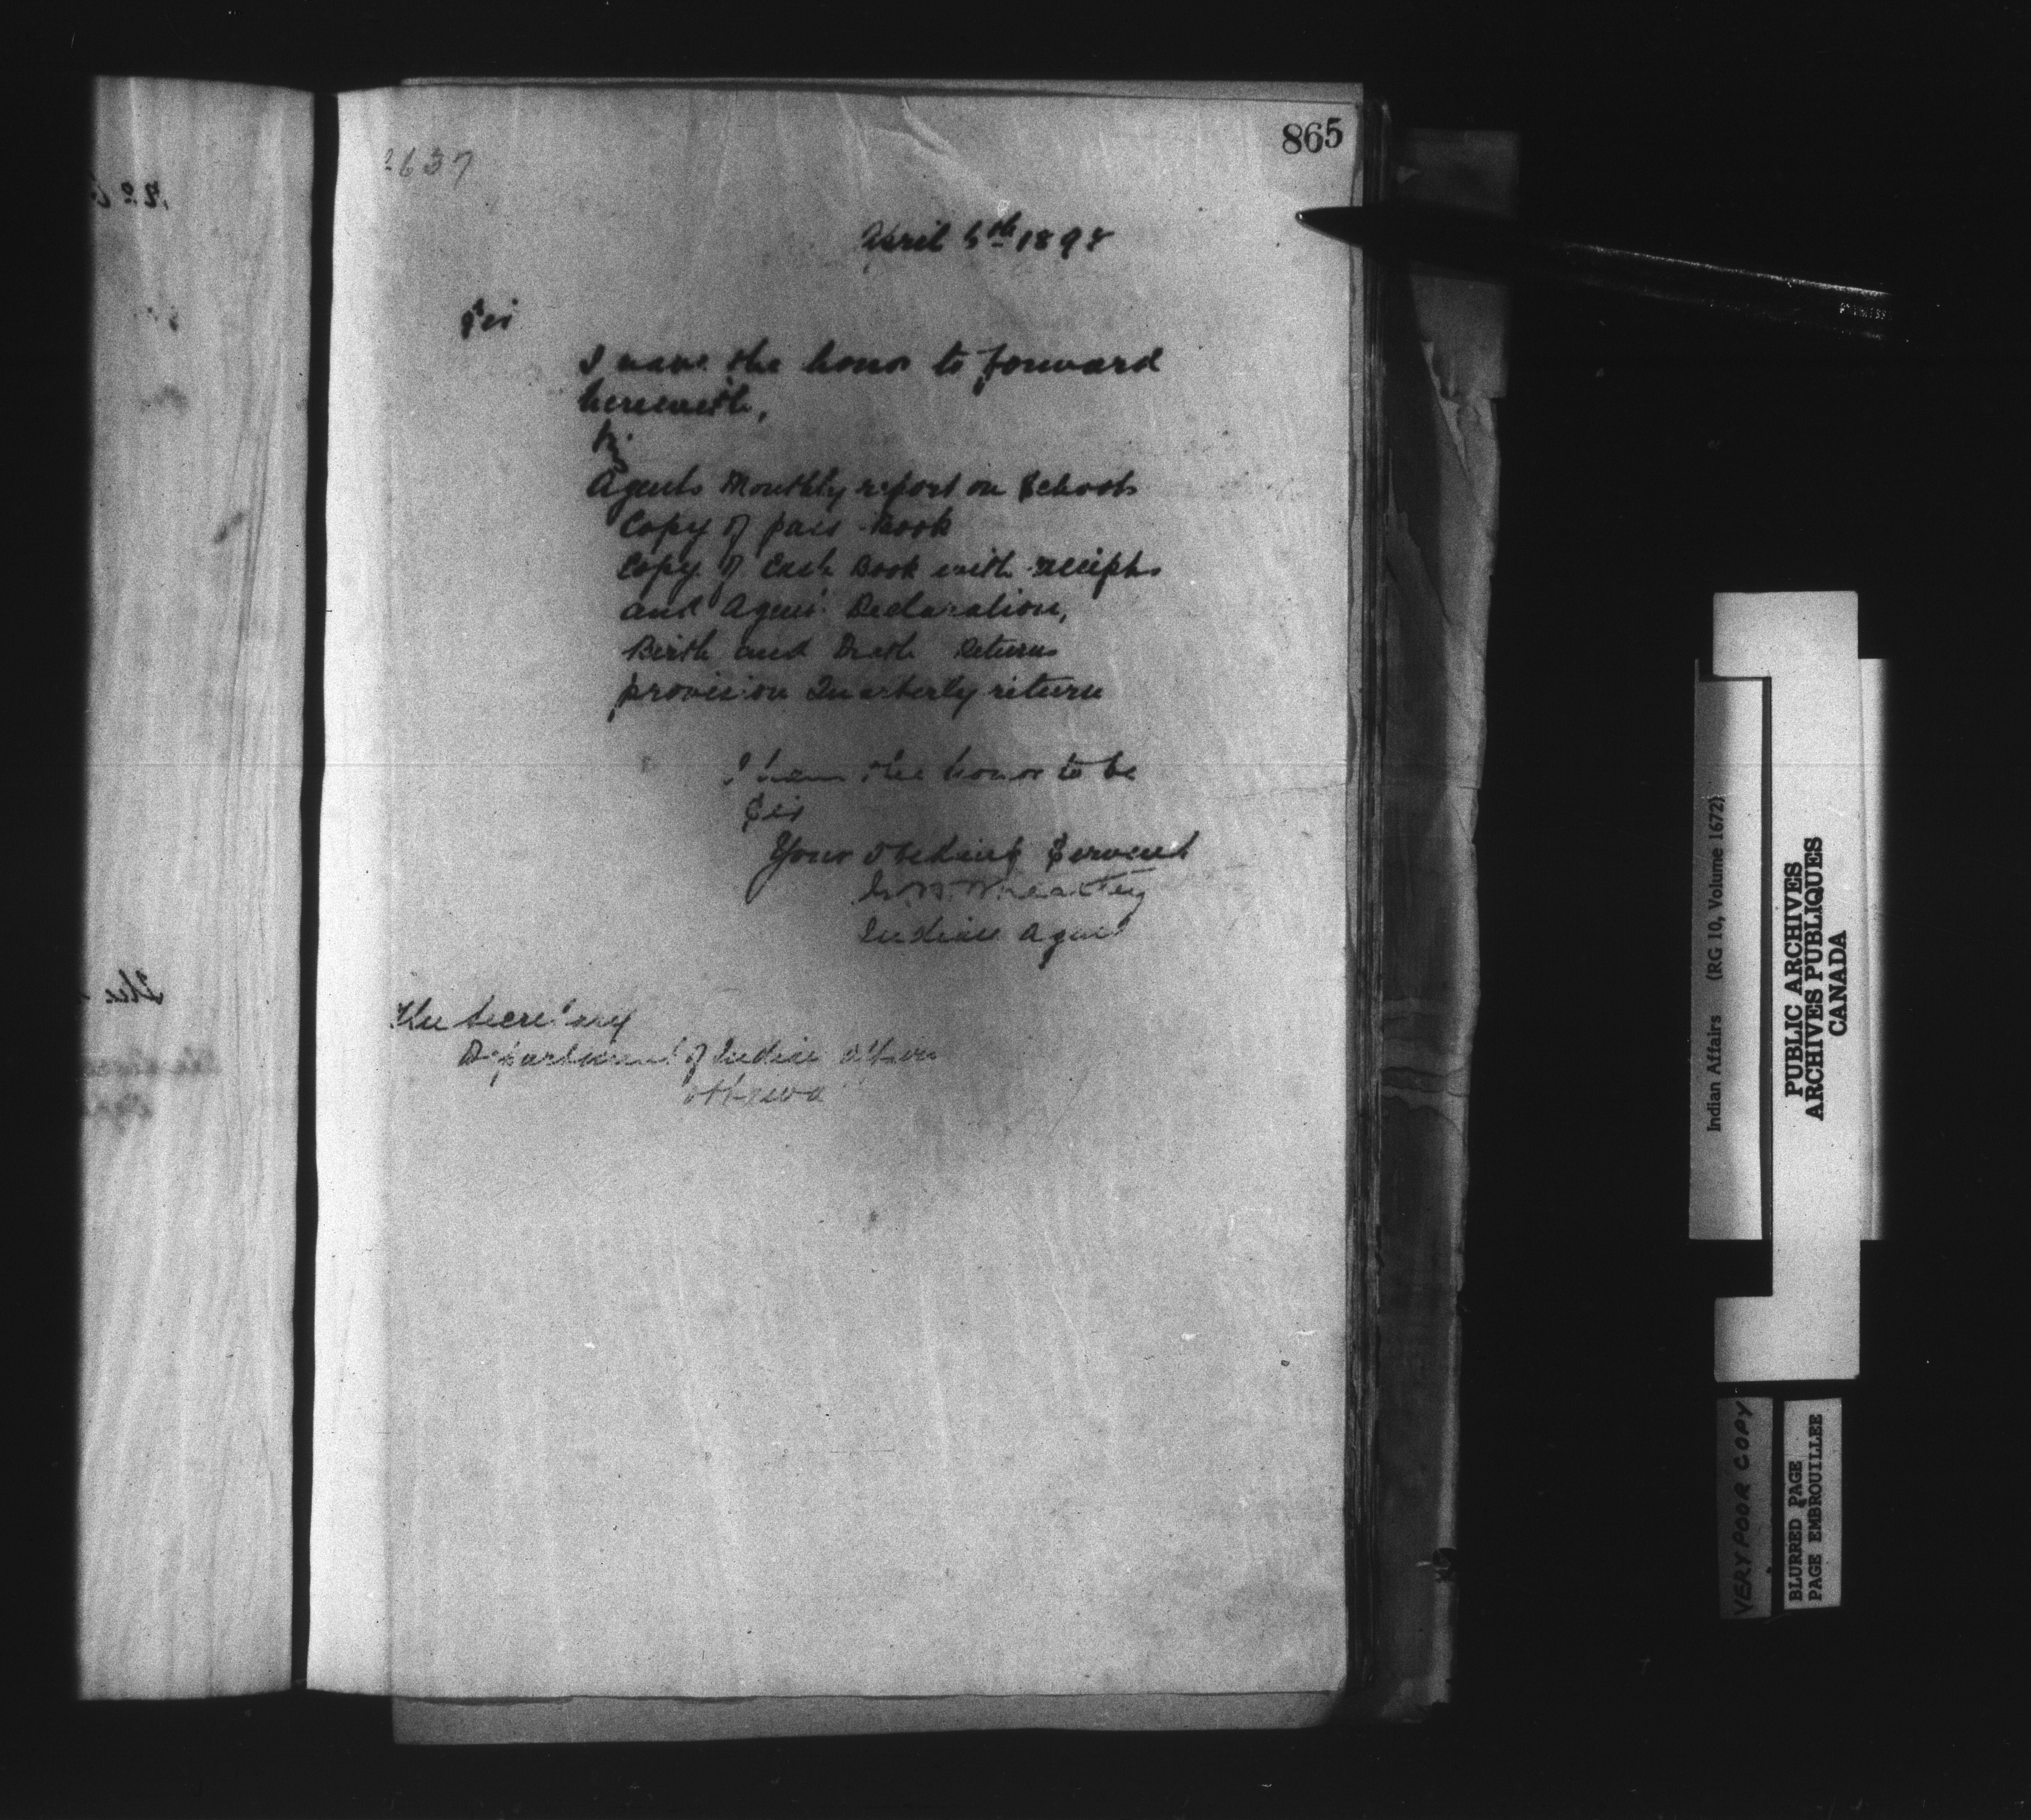 865
2637
April 5th 1898
Sir
I have the honor to forward
herewith,
Viz
Agents Monthly report on Schools
Copy of pass Book
Copy of Cash Book with receipts
and Agent Declaration,
Birth and Death Returns
provision Quarterly return
I have the honor to be
Sir
Your obedient Servant
Wheatley
Indian Agent
The Secretary
Department of Indian Affairs
Ottawa
Indian Affairs (RG 10, Volume 1672)
PUBLIC ARCHIVES
ARCHIVES PUBLIQUES
CANADA
VERY POOR COPY
BLURRED PAGE
PAGE EMBROUILLEE